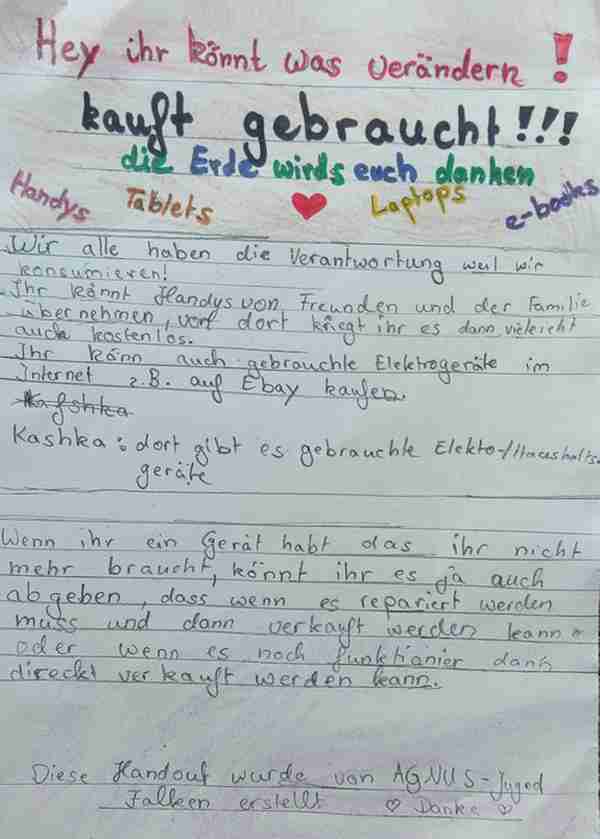 Hey ihr könnt was verändern !
kauft gebraucht!!!
die Erde wirds euch danken
Handys Tablets ♥ Laptops e-books
Wir alle haben die Verantwortung weil wir
konsumieren!
Ihr könnt Handys von Freunden und der Familie
übernehmen, von dort kriegt ihr es dann vieleicht
auch kostenlos.
Ihr könn auch gebrauchte Elektrogeräte im
Internet z.B. auf Ebay kaufen.
Kafshka
Kashka: dort gibt es gebrauchte Elekto-/Haushalts-
geräte
Wenn ihr ein Gerät habt das ihr nicht
mehr braucht, könnt ihr es ja auch
abgeben, dass wenn es repariert werden
muss und dann verkauft werden kann
oder wenn es noch funktianier dann
direckt verkauft werden kann.
Diese Handout wurde von AGNUS-Juged
Falken erstellt ♡ Danke ♡